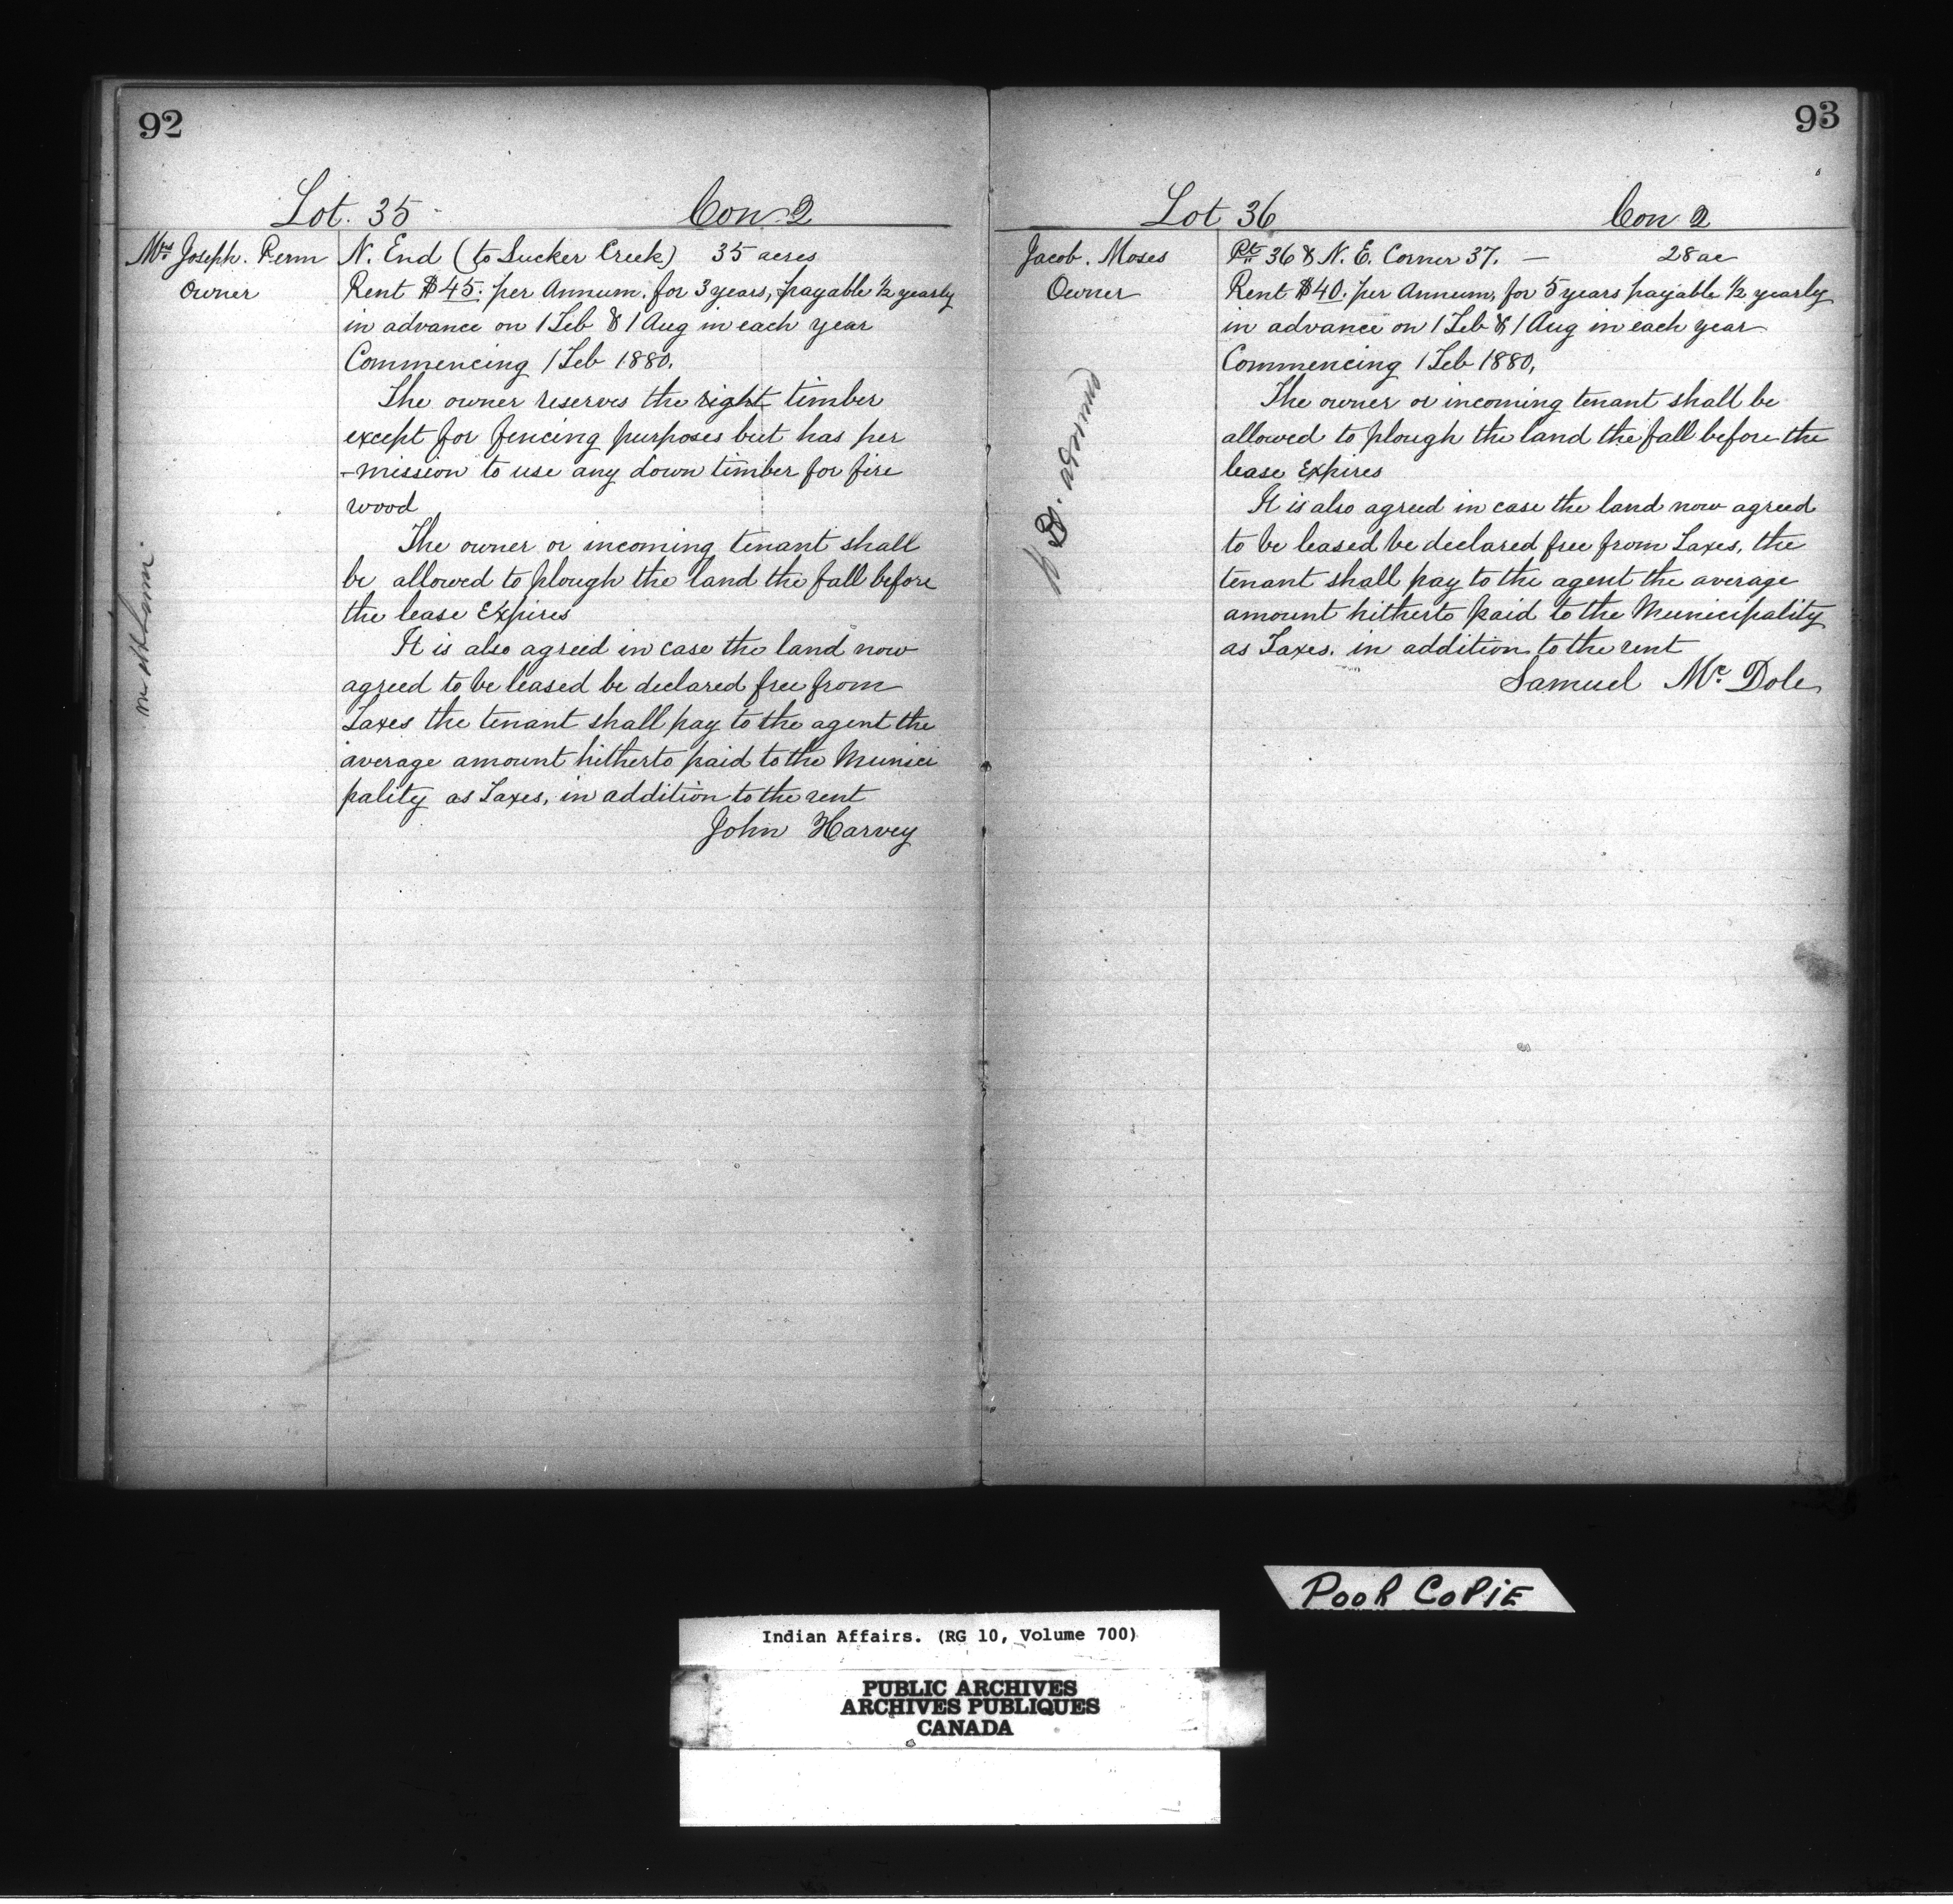 92
Lot. 35 Con 2
Mrs Joseph. Penn
Owner
N. End (to Sucker Creek) 35 acres
Rent $45. per Annum. for 3 years, payable ½ yearly
in advance on 1 Feb & 1 Aug in each year
Commencing 1 Feb 1880.
The owner reserves the right timber
except for fencing purposes but has per
-mission to use any down timber for fire
wood
The owner or incoming tenant shall
be allowed to plough the land the fall before
the lease Expires
It is also agreed in case the land now
agreed to be leased be declared free from
Taxes the tenant shall pay to the agent the
average amount hitherto paid to the Munici
pality as Taxes, in addition to the rent
John Harvey
93
Lot 36 Con 2
Jacob. Moses
Owner
Pt 36 & N. E. Corner 37. — 28 ac
Rent $40. per Annum, for 5 years payable ½ yearly
in advance on 1 Feb & 1 Aug in each year
Commencing 1 Feb 1880,
The owner or incoming tenant shall be
allowed to plough the land the fall before the
lease Expires
It is also agreed in case the land now agreed
to be leased be declared free from Taxes, the
tenant shall pay to the agent the average
amount hitherto paid to the Municipality
as Taxes. in addition to the rent
Samuel Mc Dole
POOR COPiE
Indian Affairs. (RG 10, Volume 700)
PUBLIC ARCHIVES
ARCHIVES PUBLIQUES
CANADA